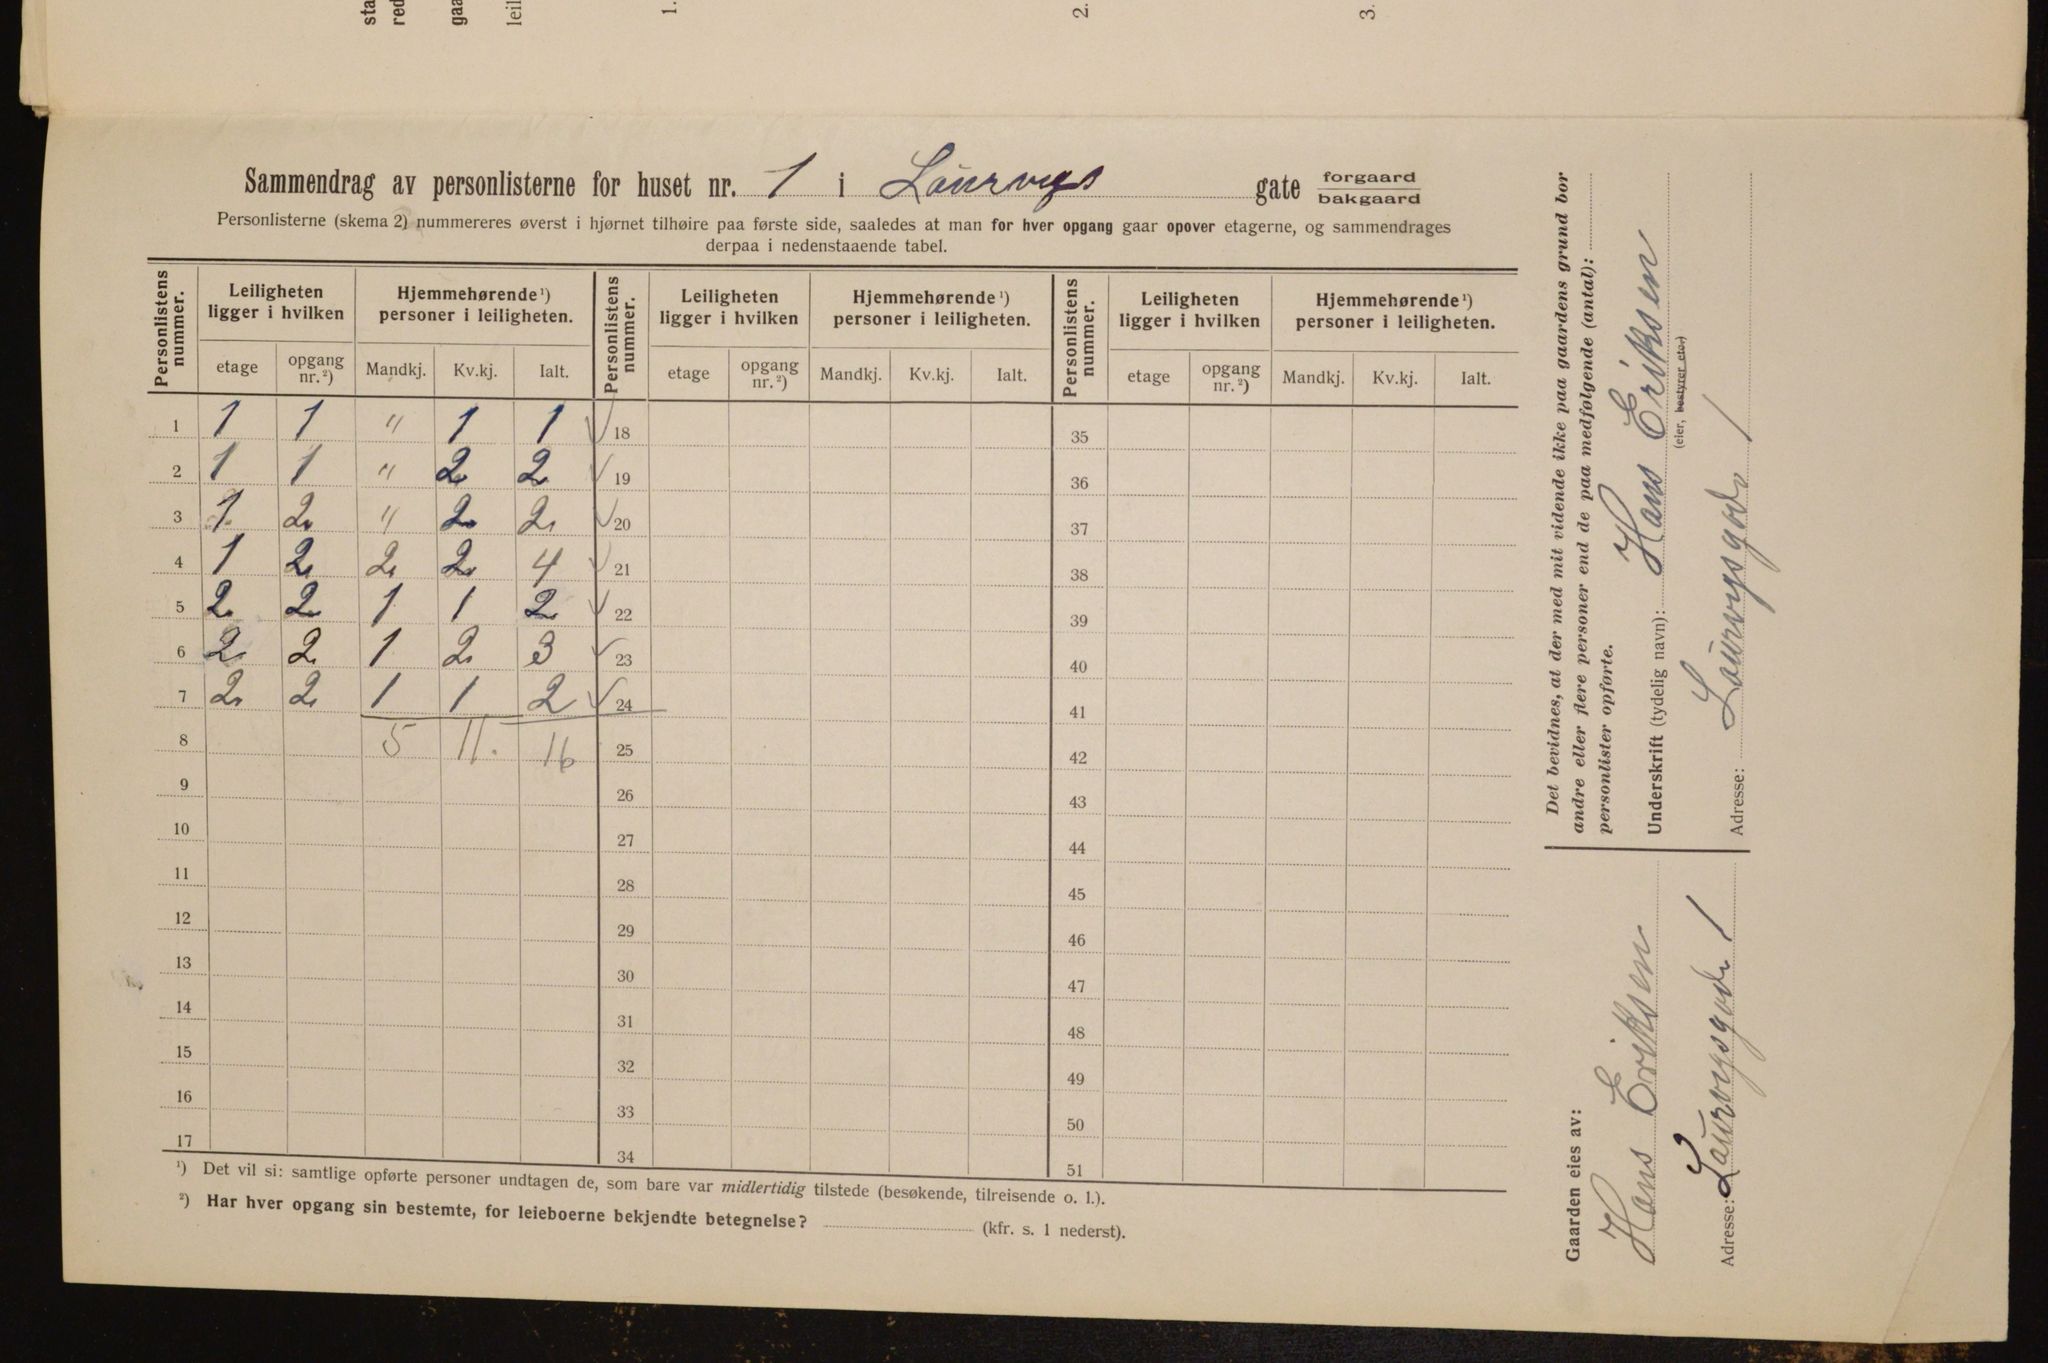 sta
red
gaa
leil
1.
2.
3.
Sammendrag av personlisterne for huset nr. 1 i Laurvigs gate forgaard
bakgaard
Personlisterne (skema 2) nummereres øverst i hjørnet tilhøire paa første side, saaledes at man for hver opgang gaar opover etagerne, og sammendrages
derpaa i nedenstaaende tabel.
Personlistens nummer. Leiligheten ligger i hvilken Hjemmehørende ¹) personer i leiligheten. Personlistens nummer. Leiligheten ligger i hvilken Hjemmehørende ¹) personer i leiligheten. Personlistens nummer. Leiligheten ligger i hvilken Hjemmehørende ¹) personer i leiligheten.
etage opgang nr.²) Mandkj. Kv.kj. Ialt. etage opgang nr.²) Mandkj. Kv.kj. Ialt. etage opgang nr.²) Mandkj. Kv.kj. Ialt.
1 1 1 " 1 1 ✓ 18 35
2 1 1 " 2 2 ✓ 19 36
3 1 2 " 2 2 ✓ 20 37
4 1 2 2 2 4 ✓ 21 38
5 2 2 1 1 2 ✓ 22 39
6 2 2 1 2 3 ✓ 23 40
7 2 2 1 1 2 ✓ 24 41
8 5 11. 16 25 42
9 26 43
10 27 44
11 28 45
12 29 46
13 30 47
14 31 48
15 32 49
16 33 50
17 34 51
¹) Det vil si: samtlige opførte personer undtagen de, som bare var midlertidig tilstede (besøkende, tilreisende o. l.).
²) Har hver opgang sin bestemte, for leieboerne bekjendte betegnelse? (kfr. s. 1 nederst).
Det bevidnes, at der med mit vidende ikke paa gaardens grund bor
andre eller flere personer end de paa medfølgende (antal):
personlister opførte.
Underskrift (tydelig navn): Hans Eriksen
(eier, bestyrer etc.)
Adresse: Laurvigsgade 1
Gaarden eies av:
Hans Eriksen
Adresse: Laurvigsgade 1